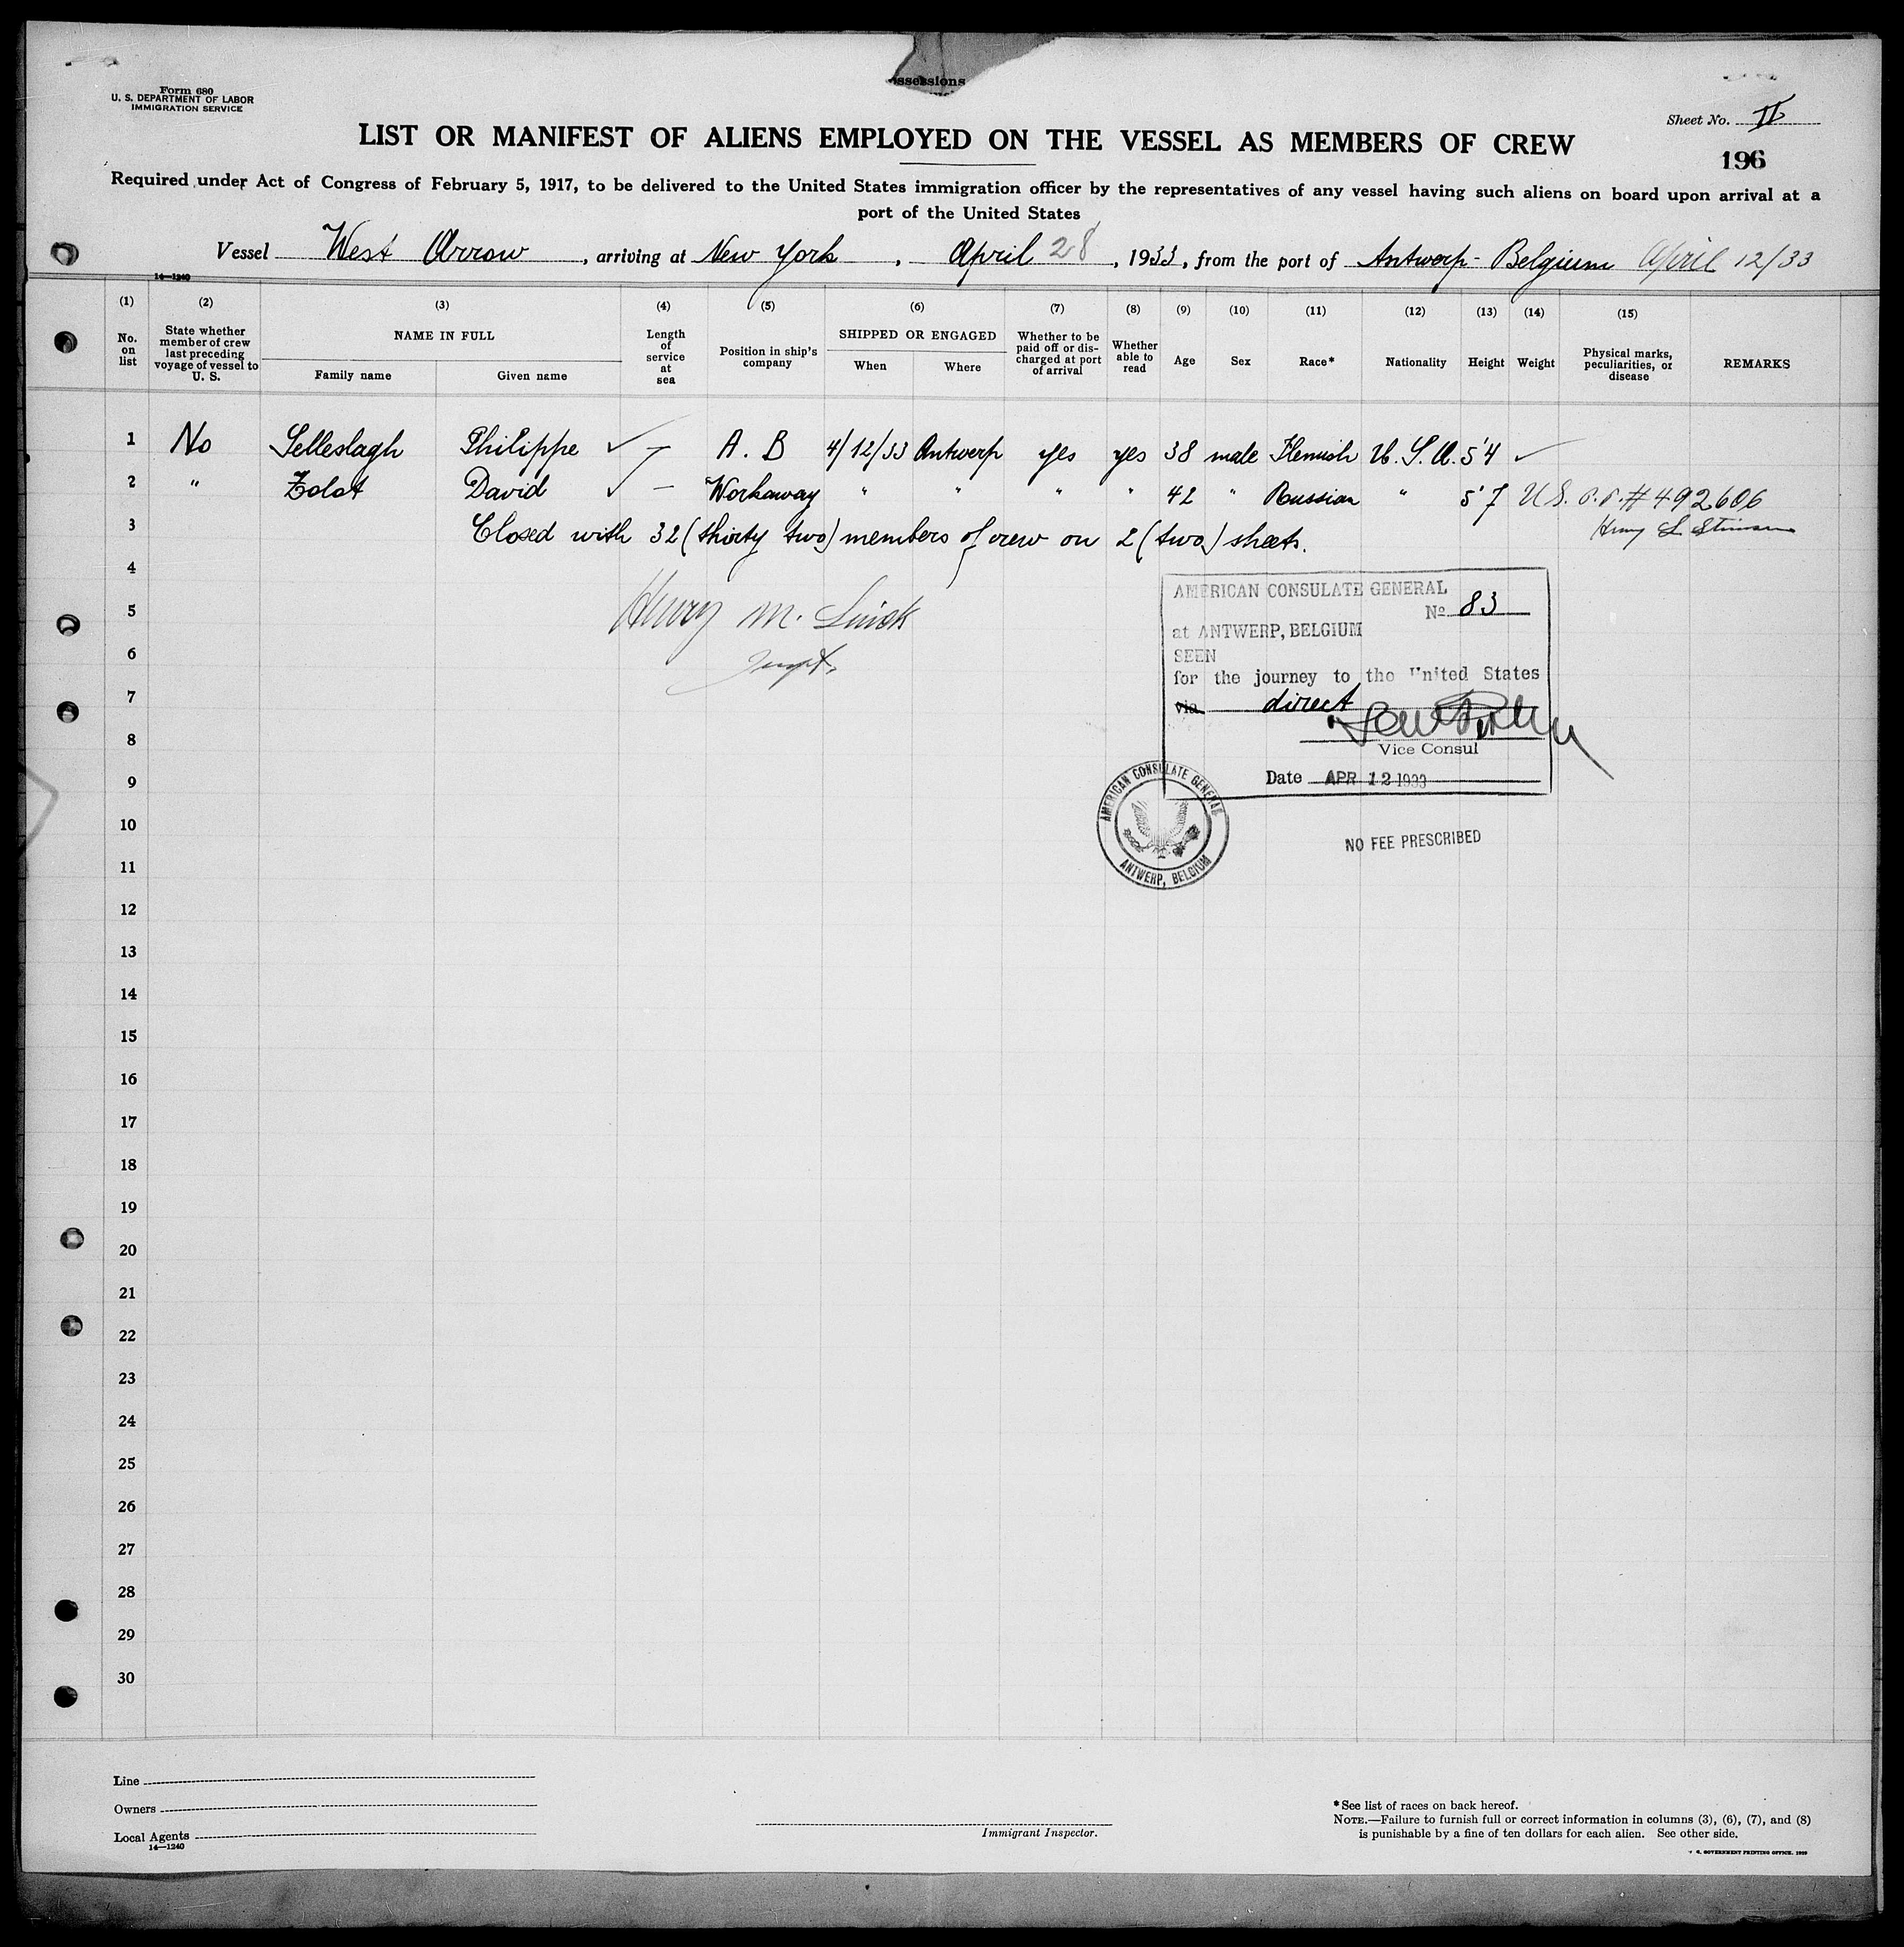 ssessions
Form 680
U. S. DEPARTMENT OF LABOR
IMMIGRATION SERVICE
Sheet No. II
LIST OR MANIFEST OF ALIENS EMPLOYED ON THE VESSEL AS MEMBERS OF CREW
196
Required under Act of Congress of February 5, 1917, to be delivered to the United States immigration officer by the representatives of any vessel having such aliens on board upon arrival at a
port of the United States
Vessel West Arrow, arriving at New York, April 28, 1933, from the port of Antwerp - Belgium April 12/33
14—1240
(1) (2) (3) (4) (5) (6) (7) (8) (9) (10) (11) (12) (13) (14) (15)
No. on list
State whether member of crew last preceding voyage of vessel to U. S.
NAME IN FULL
Family name
Given name
Length of service at sea
Position in ship's company
SHIPPED OR ENGAGED
When
Where
Whether to be paid off or discharged at port of arrival
Whether able to read
Age
Sex
Race*
Nationality
Height
Weight
Physical marks, peculiarities, or disease
REMARKS
1 No Selleslagh Philippe ✓ — A. B 4/12/33 Antwerp yes yes 38 male Flemish U. S. A. 5'4 ✓
2 " Zolot David ✓ — Workaway " " " " 42 " Russian " 5'7 U.S. P.P. # 492606
Henry L Stimson
3 Closed with 32 (thirty two) members of crew on 2 (two) sheets.
4
5 Henry M.
6
7
8
9
10
11
12
13
14
15
16
17
18
19
20
21
22
23
24
25
26
27
28
29
30
AMERICAN CONSULATE GENERAL
No 83
at ANTWERP, BELGIUM
SEEN
for the journey to the United States
via direct
Vice Consul
Date APR 12 1933
AMERICAN CONSULATE GENERAL
ANTWERP, BELGIUM
NO FEE PRESCRIBED
Line
Owners
Local Agents
14—1240
Immigrant Inspector.
*See list of races on back hereof.
NOTE.—Failure to furnish full or correct information in columns (3), (6), (7), and (8)
is punishable by a fine of ten dollars for each alien. See other side.
S. GOVERNMENT PRINTING OFFICE. 1929